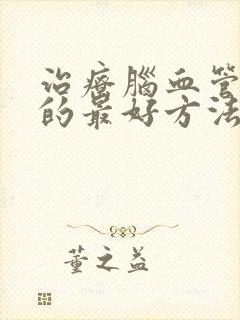 治療腦血管
的最好方法
董之益